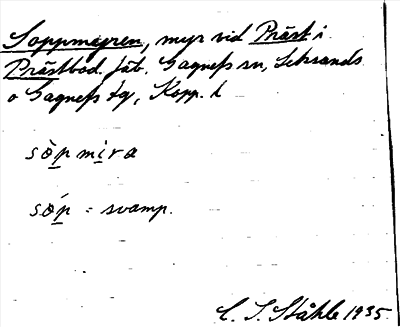 Soppmyren, myr vid Präst i
Prästbod. fäb. Gagnefs sn, Leksands
o Gagnefs tg, Kopp. l
sòpmira
sóp = svamp.
C. I. Ståhle 1935.